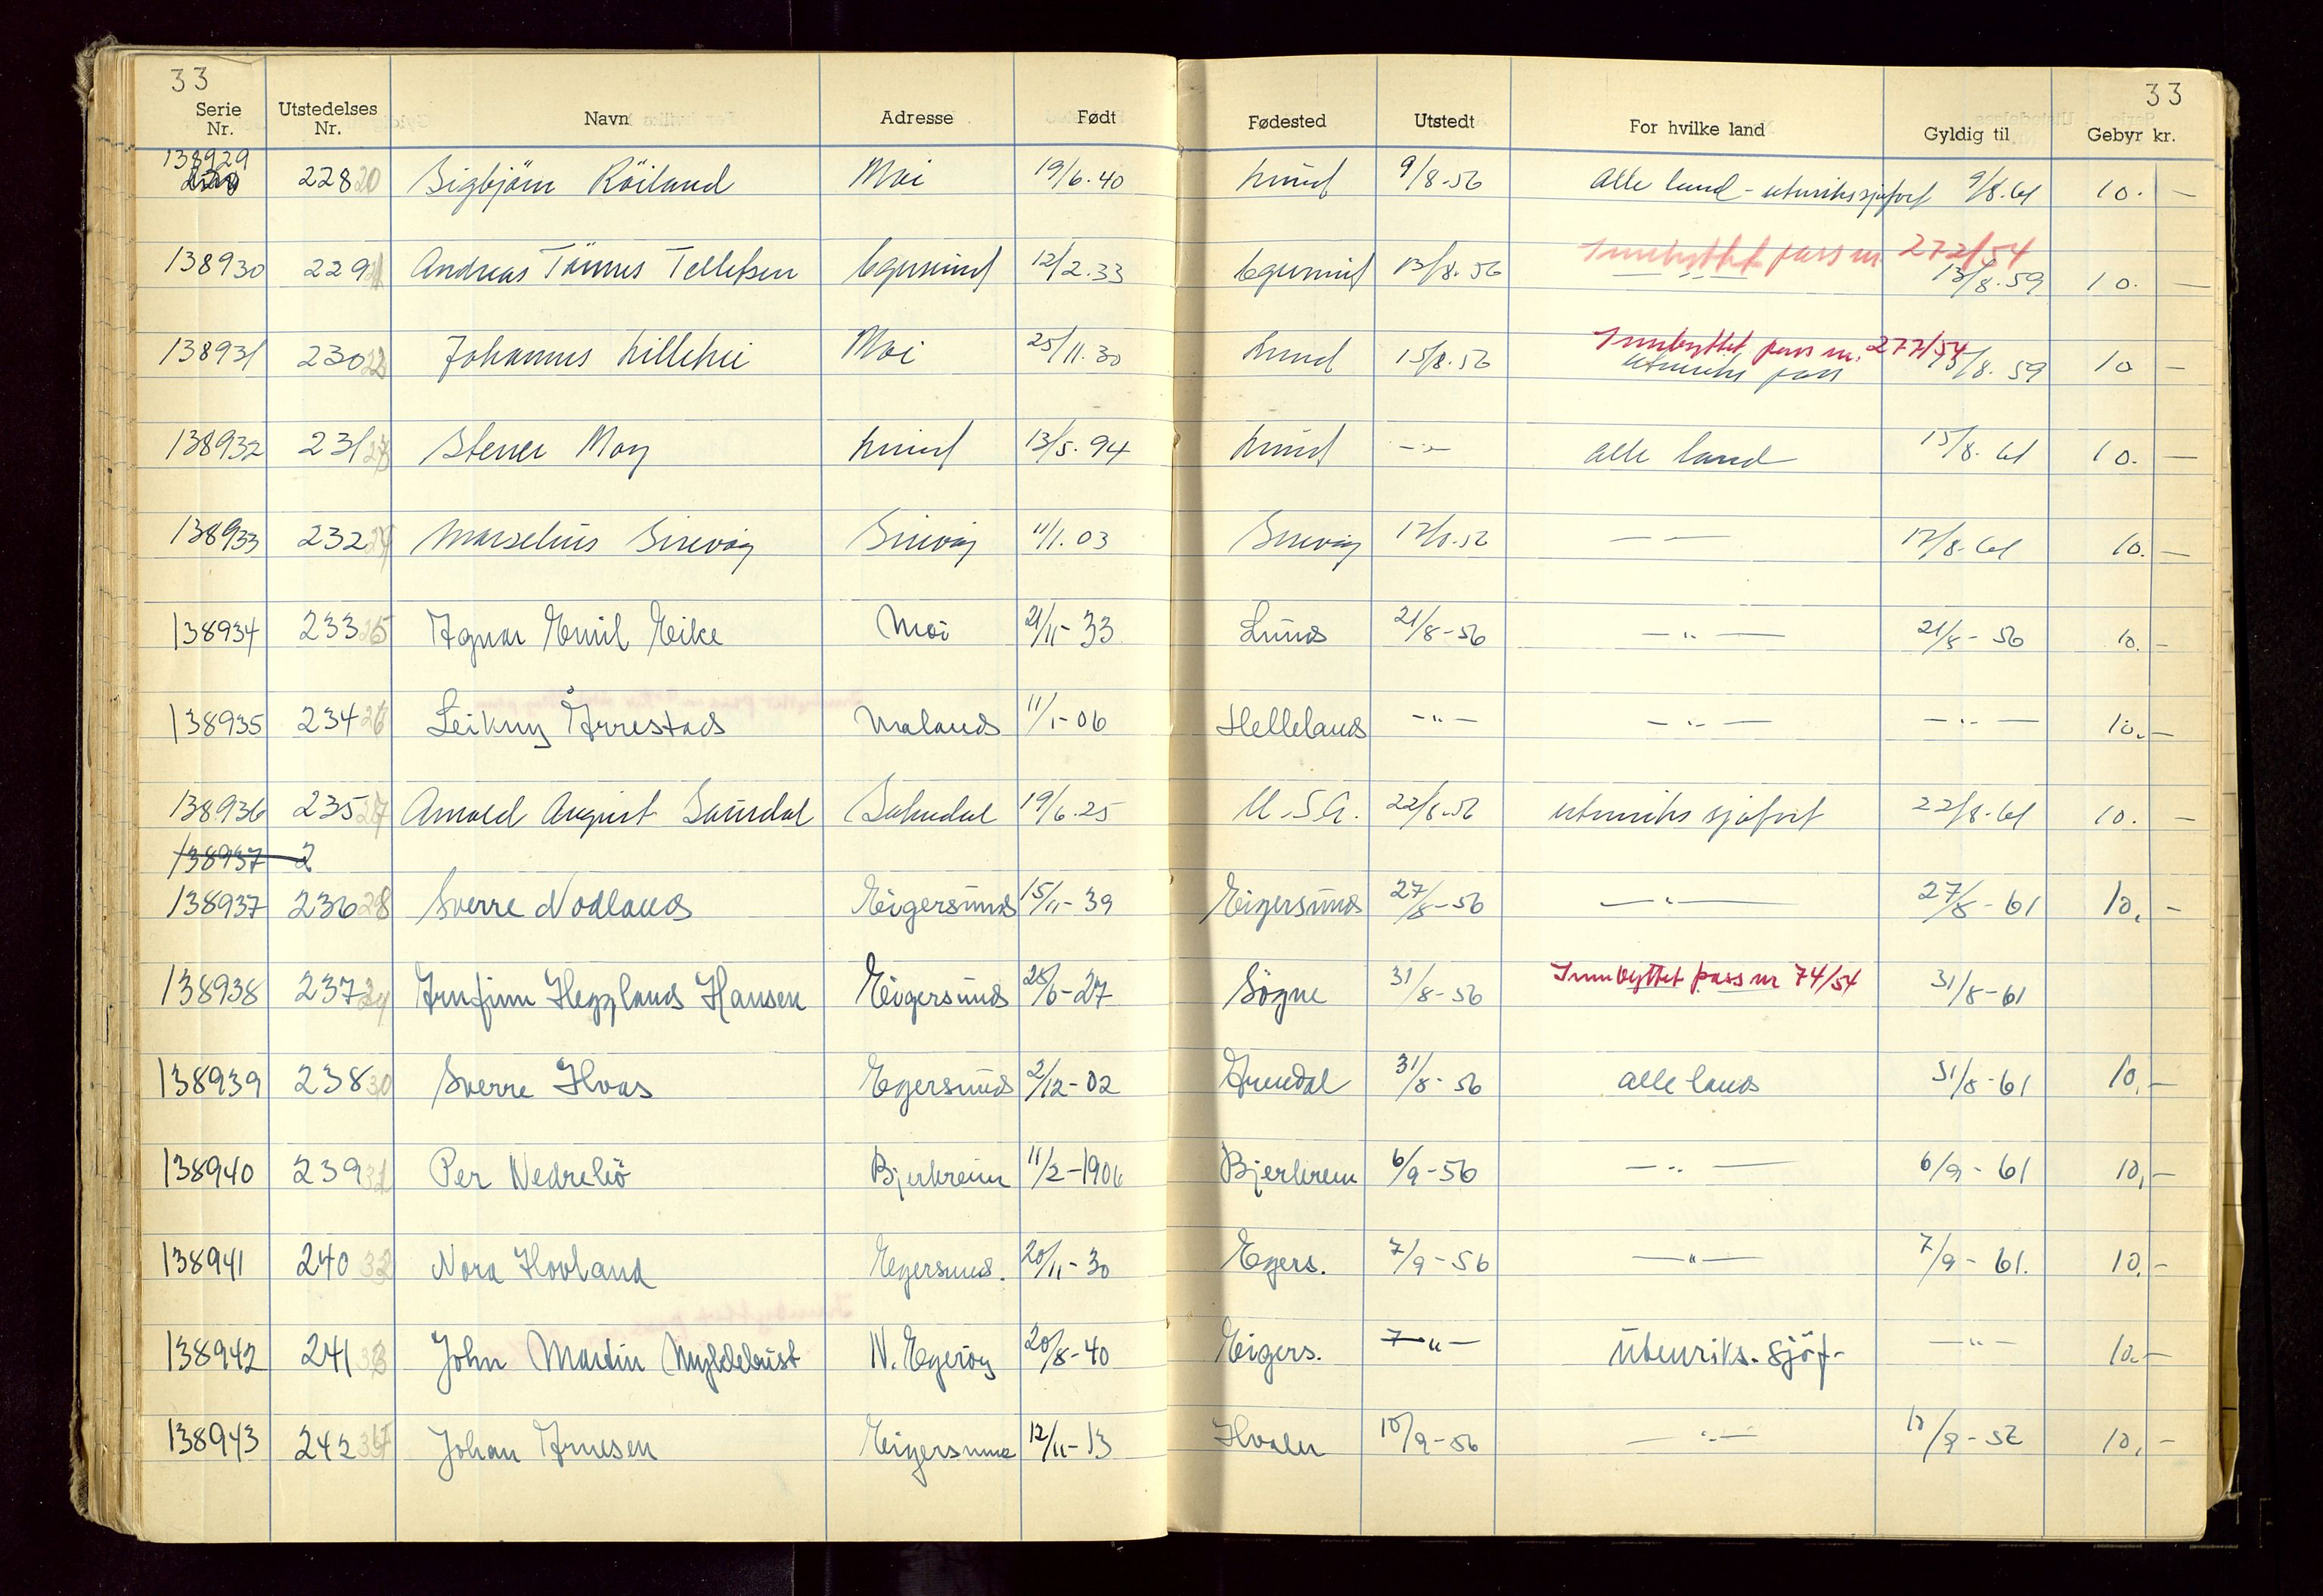 33 33
Serie Nr. Utstedelses Nr. Navn Adresse Født Fødested Utstedt For hvilke land Gyldig til Gebyr kr.
138929 228 20 Sigbjörn Röiland Moi 19/6.40 Lund 9/8-56 Alle land - utenrikssjøfart 9/8.61 10. -
Innbyttet pass nr 272/54
138930 229 21 Andreas Tönnes Tellefsen Egersund 12/2.33 Egersund 13/8.56 — " — 13/8.59 10. -
Innbyttet pass nr. 277/54
138931 230 22 Johannes Lillehei Moi 25/11.30 Lund 15/8.56 utenriks pass 15/8.59 10 -
138932 231 23 Stener Moy Lund 13/5.94 Lund - " - alle land 15/8.61 10. -
138933 232 24 Marselius Sirevåg Sirevåg 11/1.03 Sirevåg 17/8.56 — — 17/8.61 10. -
138934 233 25 Agnar Emil Eike Moi 21/11-33 Lund 21/8-56 — " — 21/8-56 10. -
138935 234 26 Leikny Årrestad Ualand 11/1-06 Helleland - " - — " — — " — 10. -
138936 235 27 Arnold August Saurdal Sokndal 19/6.25 U.S.A. 22/8.56 utenriks sjøfart 22/8.61 10. -
138937 2
138937 236 28 Sverre Nodland Eigersund 15/11-39 Eigersund 27/8-56 — " — 27/8-61 10, -
138938 237 29 Arnfinn Heggland Hansen Eigersund 28/6-27 Søgne 31/8-56 Innbyttet pass nr 74/54 31/8-61
138939 238 30 Sverre Hvas Egersund 2/12-02 Arendal 31/8-56 alle land 31/8-61 10, -
138940 239 31 Per Nedrebö Bjerkreim 11/2-1906 Bjerkreim 6/9-56 — " — 6/9-61 10, -
138941 240 32 Nora Hovland Egersund. 20/11-30 Egers. 7/9-56 — " — 7/9-61. 10, -
138942 241 33 John Martin Myklebust N. Egerøy 20/8-40 Eigers. 7 - " - Utenriks. sjöf- — " — 10. -
138943 242 34 Johan Arnesen Eigersund 12/11-13 Hvaler 10/9-56 — " — 10/9-56 10, -